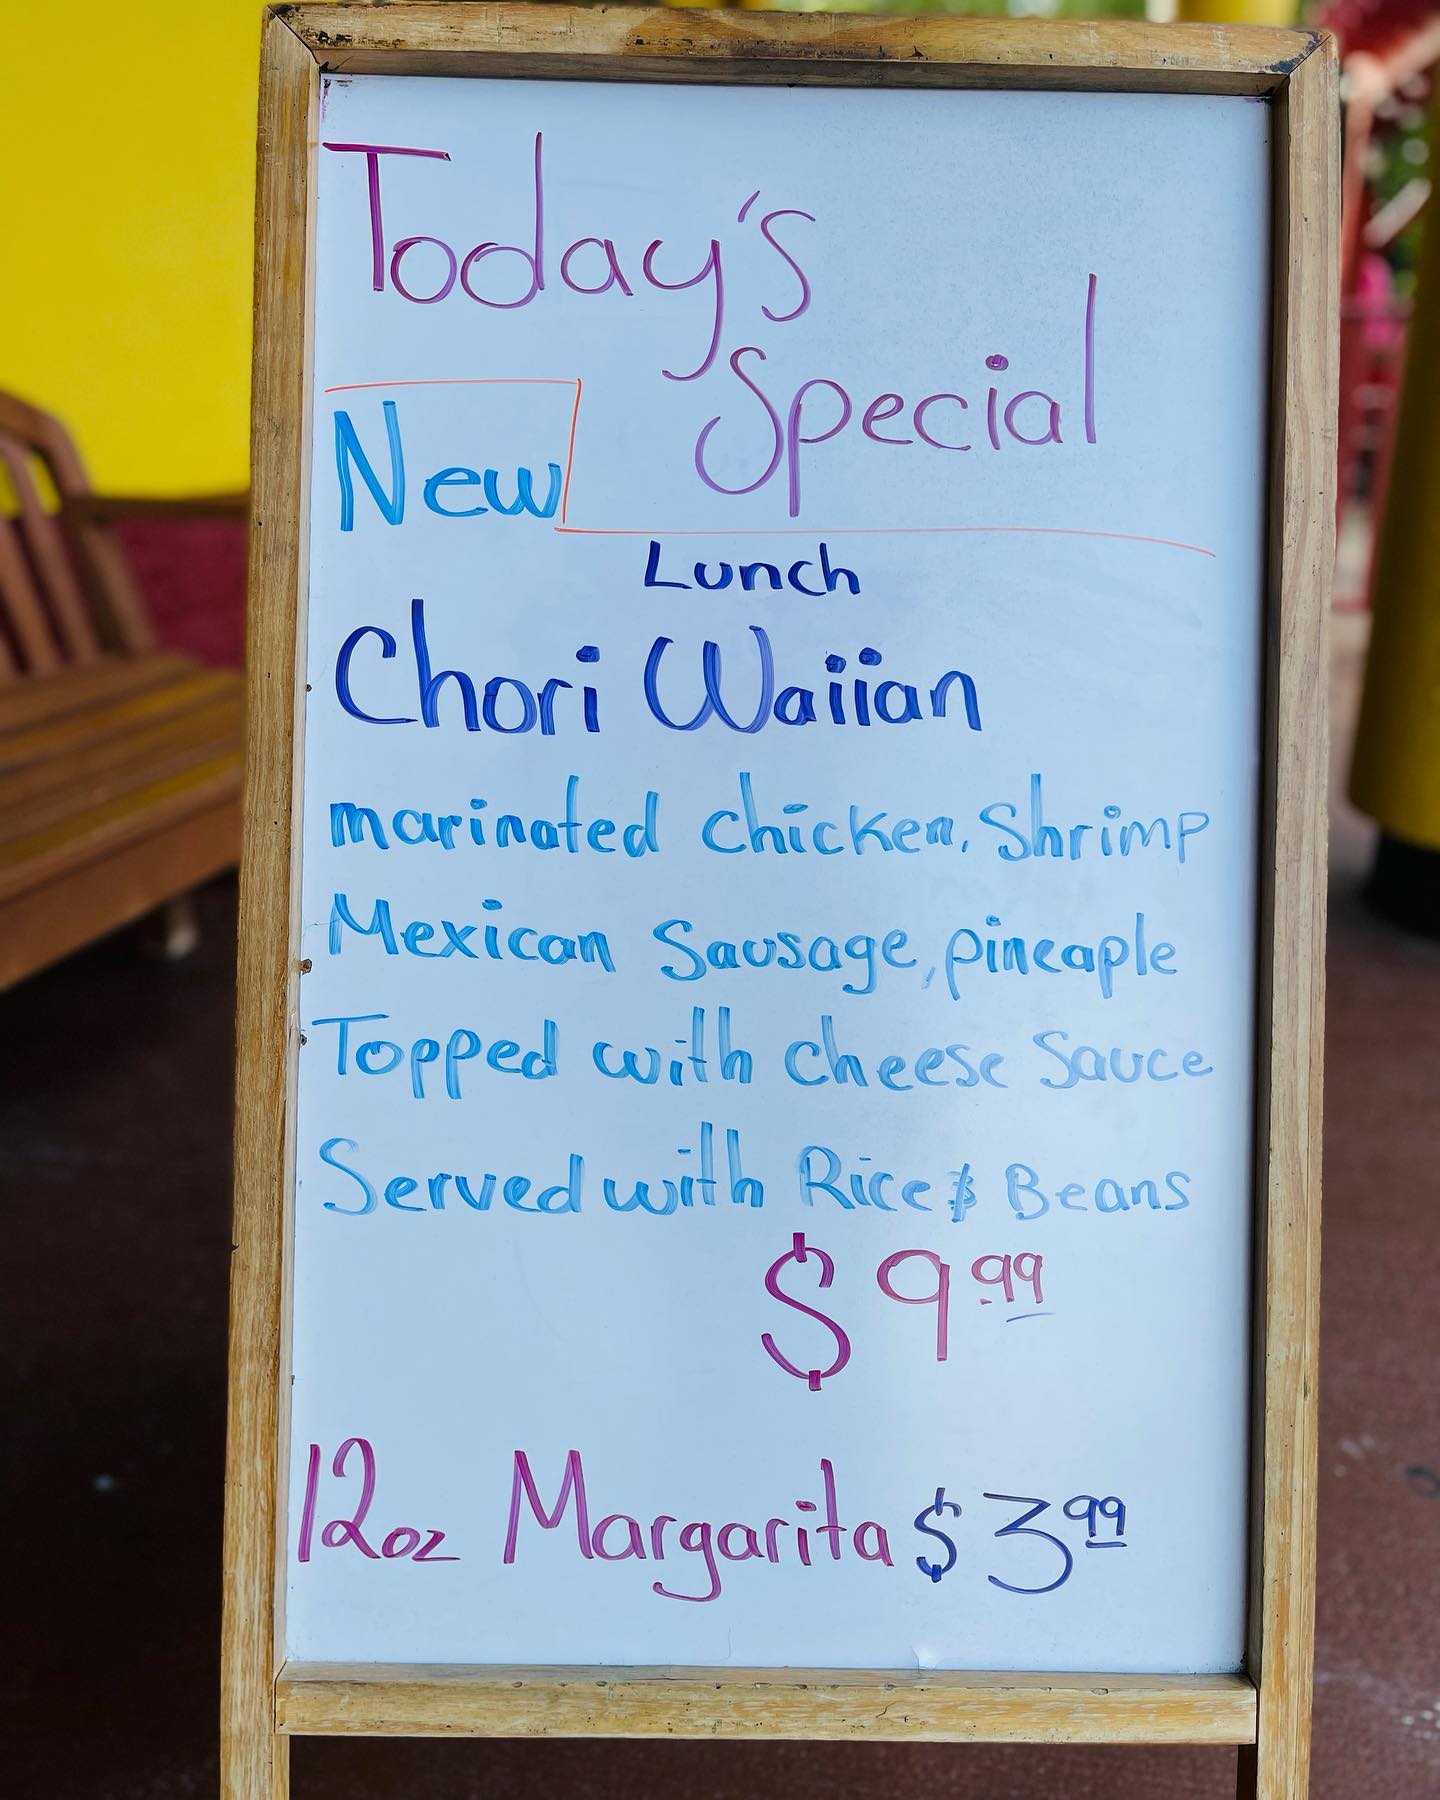 Today's
Special
New
Lunch
Chori Waiian
marinated chicken, Shrimp
Mexican Sausage, pineaple
Topped with cheese Sauce
Served with Rice & Beans
$9.99
12oz Margarita $3.99